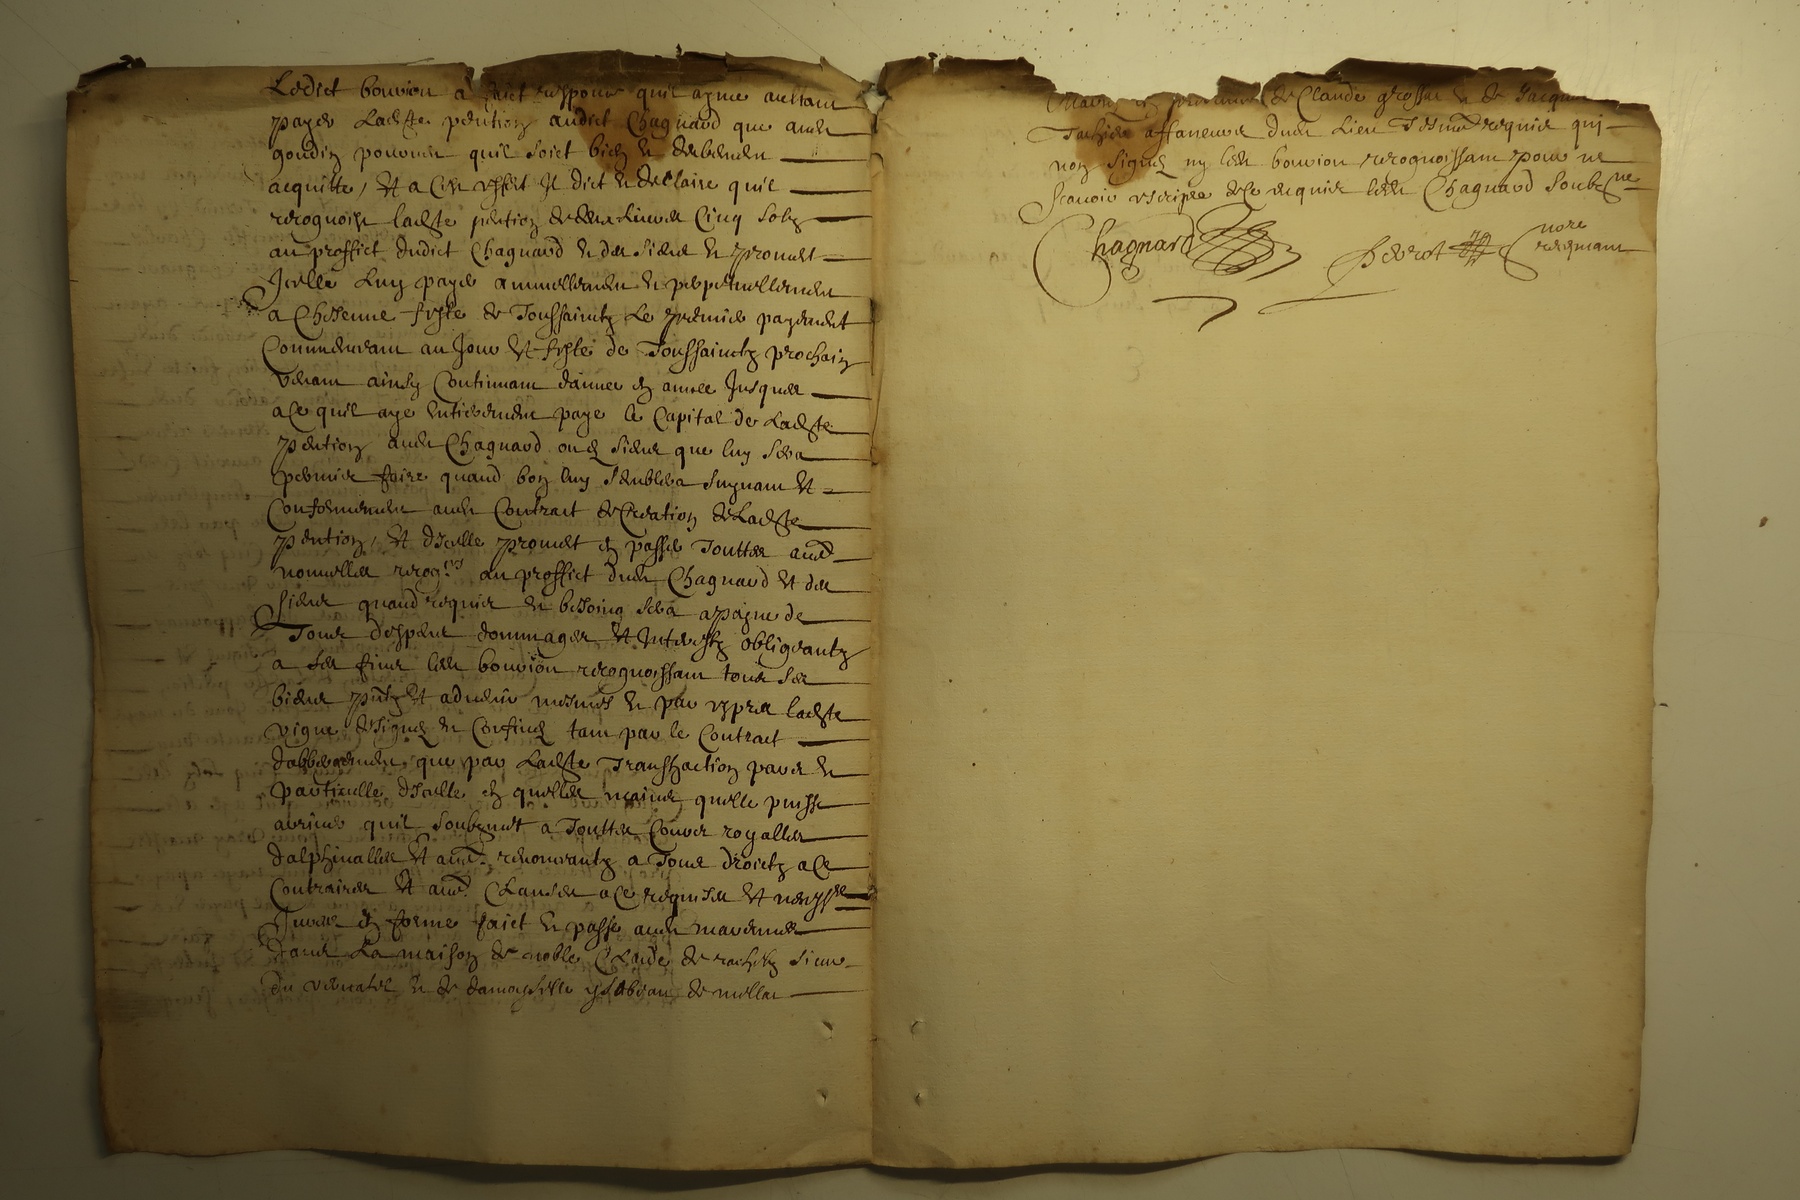 Ledict bouvion a faict responce quil ayme aultant
payer Ladste pention audict Chagnard que audt
goudin pourveu quil soict bien et
acquitte, et a cest effect Il dict et declaire quil
recognoist ladste pention de deux livres Cinq solz
au proffict dudict Chagnard et des siens et promet
Icelle luy payer annuellement et perpetuellement
a Chesenne feste de Toussainctz Le premier payement
Commencant au Jour et feste de Toussainctz prochain
venant ainsy Continuant dannee en annee Jusques
a ce quil aye entierement paye le Capital de Ladste
pention audt Chagnard ou es siens que luy sera
permis faire quand bon luy semblera suyvant et
Conformement audt Contract de Creation de Ladste
pention, et dicelle promet en passer Touttes aues
nouvelles recogns au proffict dudt Chagnard et des
siens quand requis et besoing sera a paine de
Tous despens dommages et Interestz obligeantz
a ses fins ledt bouvion recognoissant tous ses
biens pntz et advenir mesmes et par expres ladste
vigne designee et Confinee tant par le Contract
dalbergement que par Ladste Transhaction pares et
particulle dicelle en quelles mains quelle puisse
arriver quil soubzmet a Touttes Cours royalles
dalphinalles et aues renonceantz a Tous droictz a ce
Contraires et aues Clauses a ce requises et necessres
Jures en forme faict et passe audt
dans La maison de noble Claude de Sieur
du et de damoyselle ysabeau de
de Claude et de Jacques
affaneurs dudt Lieu Tesmoings requis qui
non signes ny ledt bouvion recognoissant pour ne
scavoir escripre de ce enquis ledt Chagnard soubzne
Chagnard Perrot nore
recepvant